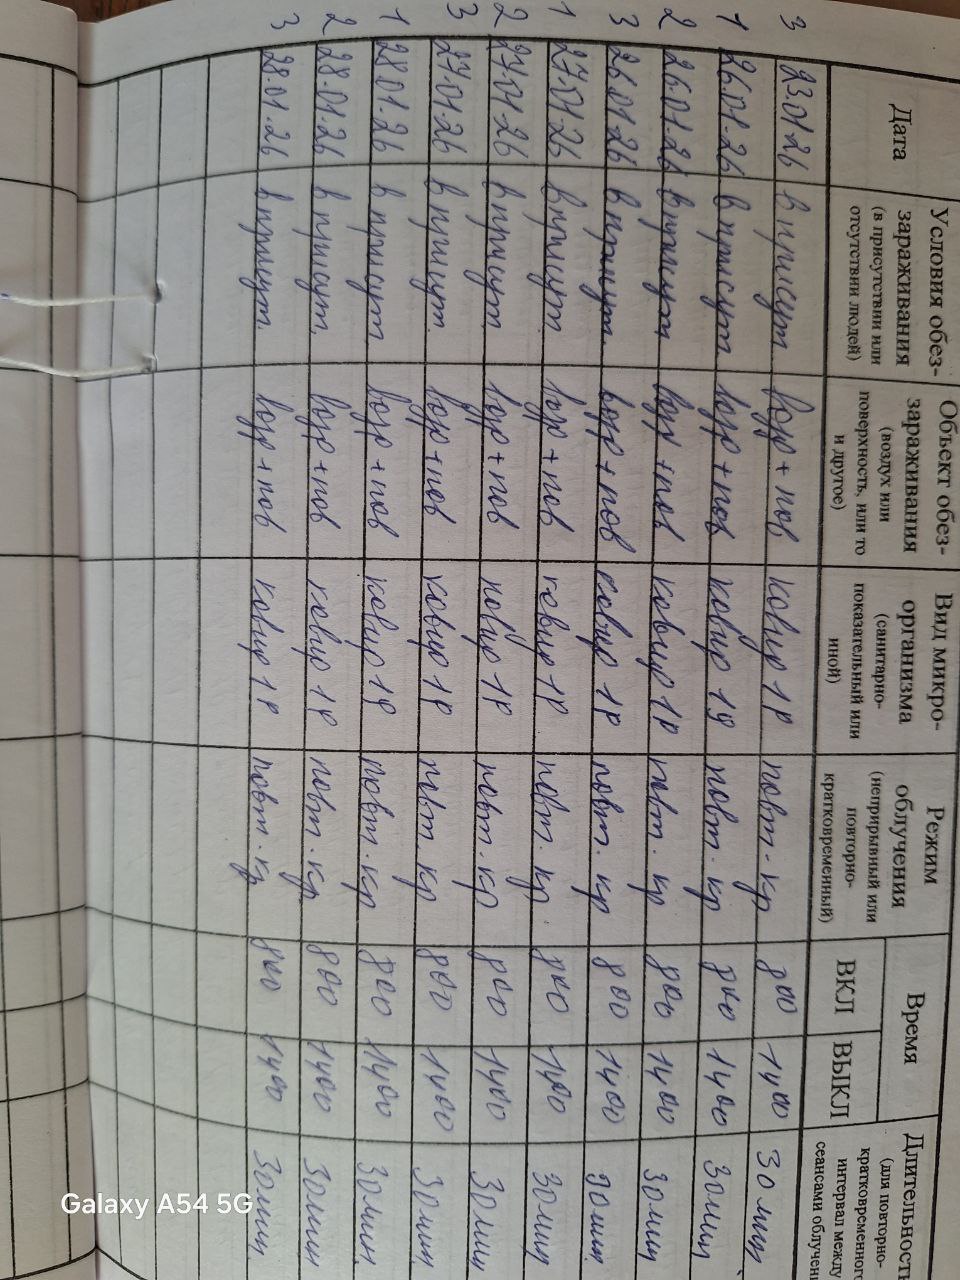 Дата
Условия обез-
зараживания
(в присутствии или
отсутствии людей)
Объект обез-
зараживания
(воздух или
поверхность, или то
и другое)
Вид микро-
организма
(санитарно-
показательный или
иной)
Режим
облучения
(неприрывный или
повторно-
кратковременный)
Время
ВКЛ
ВЫКЛ
Длительность
(для повторно-
кратковременного
интервал между
сеансами облучен
3 23.01.26 в присут возд + пов ковид 1р повт. кр 800 1400 30 мин
1 26.01.26 в присут возд + пов ковид 1р повт. кр 800 1400 30 мин
2 26.01.26 в присут возд + пов ковид 1р повт. кр 800 1400 30 мин
3 26.01.26 в присут. возд + пов ковид 1р повт. кр 800 1400 30 мин.
1 27.01.26 в присут возд + пов ковид 1р повт. кр. 800 1400 30 мин
2 27.01.26 в присут. возд + пов ковид 1р повт. кр 800 1400 30 мин
3 27.01.26 в присут. возд + пов ковид 1р повт. кр 800 1400 30 мин.
1 28.01.26 в присут возд + пов ковид 1р повт. кр 800 1400 30 мин.
2 28.01.26 в присут. возд + пов ковид 1р повт. кр. 800 1400 30 мин.
3 28.01.26 в присут. возд + пов ковид 1р повт. кр 800 1400 30 мин.
Galaxy A54 5G